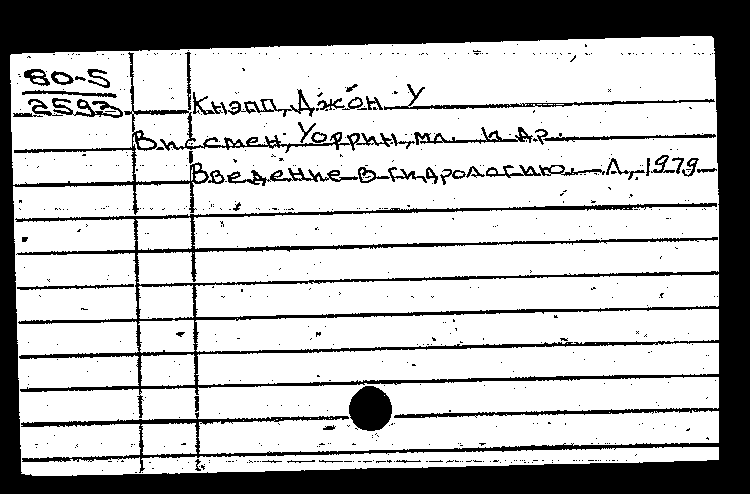 80-5
2593
Кнэпп, Джон У
Виссмен, Уоррин, мл. и др.
Введение в гидрологию. - Л., 1979